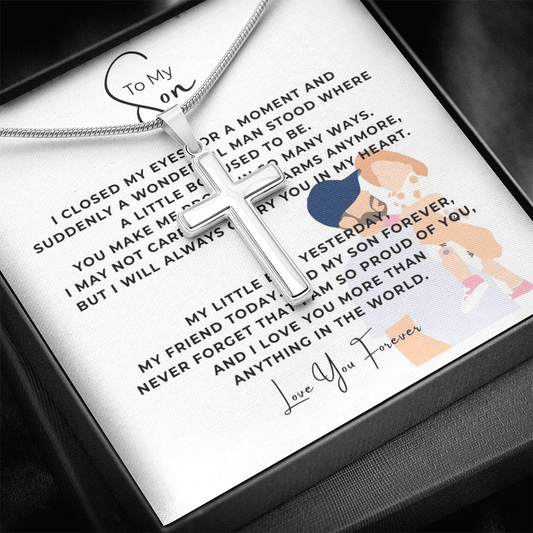 To My
Son
I CLOSED MY EYES FOR A MOMENT AND
SUDDENLY A MAN STOOD WHERE
A LITTLE USED TO BE.
YOU MAKE ME SO MANY WAYS.
I MAY NOT ARMS ANYMORE,
BUT I WILL ALWAYS YOU IN MY HEART.
MY LITTLE YESTERDAY,
MY FRIEND TODAY MY SON FOREVER,
NEVER FORGET THAT I AM SO PROUD OF YOU,
AND I LOVE YOU MORE THAN
ANYTHING IN THE WORLD.
Love You Forever